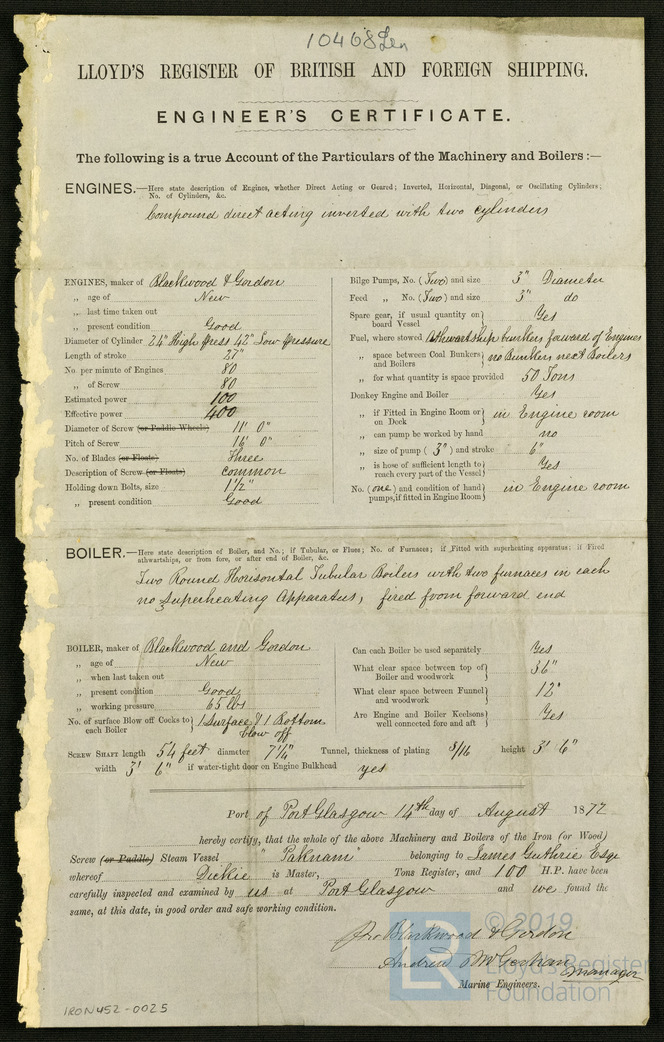 10468 Len
LLOYD'S REGISTER OF BRITISH AND FOREIGN SHIPPING.
ENGINEER'S CERTIFICATE.
The following is a true Account of the Particulars of the Machinery and Boilers :—
ENGINES.—Here state description of Engines, whether Direct Acting or Geared; Inverted, Horizontal, Diagonal, or Oscillating Cylinders;
No. of Cylinders, &c.
Compound direct acting inverted with two cylinders
ENGINES, maker of Blackwood & Gordon
„ age of New
„ last time taken out
„ present condition Good
Diameter of Cylinder 24" High Press 42" Low Pressure
Length of stroke 27"
No. per minute of Engines 80
„ of Screw 80
Estimated power 100
Effective power 400
Diameter of Screw (or Paddle Wheels) 11' 0"
Pitch of Screw 16' 0"
No. of Blades (or Floats) Three
Description of Screw (or Floats) common
Holding down Bolts, size 1½"
„ present condition Good
Bilge Pumps, No. (Two) and size 3" Diameter
Feed „ No. (Two) and size 3" do
Spare gear, if usual quantity on board Vessel } Yes
Fuel, where stowed, Athwartship bunkers forward of Engines
„ space between Coal Bunkers and Boilers } no Bunkers next Boilers
„ for what quantity is space provided 50 Tons
Donkey Engine and Boiler Yes
„ if Fitted in Engine Room or on Deck } in Engine room
„ can pump be worked by hand no
„ size of pump (3") and stroke 6"
„ is hose of sufficient length to reach every part of the Vessel } Yes
No. (one) and condition of hand pumps, if fitted in Engine Room } in Engine room
BOILER.—Here state description of Boiler, and No.; if Tubular, or Flues; No. of Furnaces; if Fitted with superheating apparatus; if Fired
athwartships, or from fore, or after end of Boiler, &c.
Two Round Horisontal Tubular Boilers with two furnaces in each
no Superheating Apparatus, fired from forward end
BOILER, maker of Blackwood and Gordon
„ age of New
„ when last taken out
„ present condition Good
„ working pressure 65 lbs
No. of surface Blow off Cocks to each Boiler } 1 Surface & 1 Bottom
blow off
Can each Boiler be used separately Yes
What clear space between top of Boiler and woodwork } 36"
What clear space between Funnel and woodwork } 12"
Are Engine and Boiler Keelsons well connected fore and aft } Yes
SCREW SHAFT length 54 feet diameter 7¼" Tunnel, thickness of plating 5/16 height 3' 6"
width 3' 6" if water-tight door on Engine Bulkhead yes
Port of Port Glasgow 14th day of August 1872
hereby certify, that the whole of the above Machinery and Boilers of the Iron (or Wood)
Screw (or Paddle) Steam Vessel "Paknam" belonging to James Guthrie Esqe
whereof Dickie is Master, Tons Register, and 100 H.P. have been
carefully inspected and examined by us at Port Glasgow and we found the
same, at this date, in good order and safe working condition.
Pro Blackwood & Gordon
Andrew McGeachan
Manager
Marine Engineers.
© 2019
LR
Lloyd's Register
Foundation
IRON452-0025